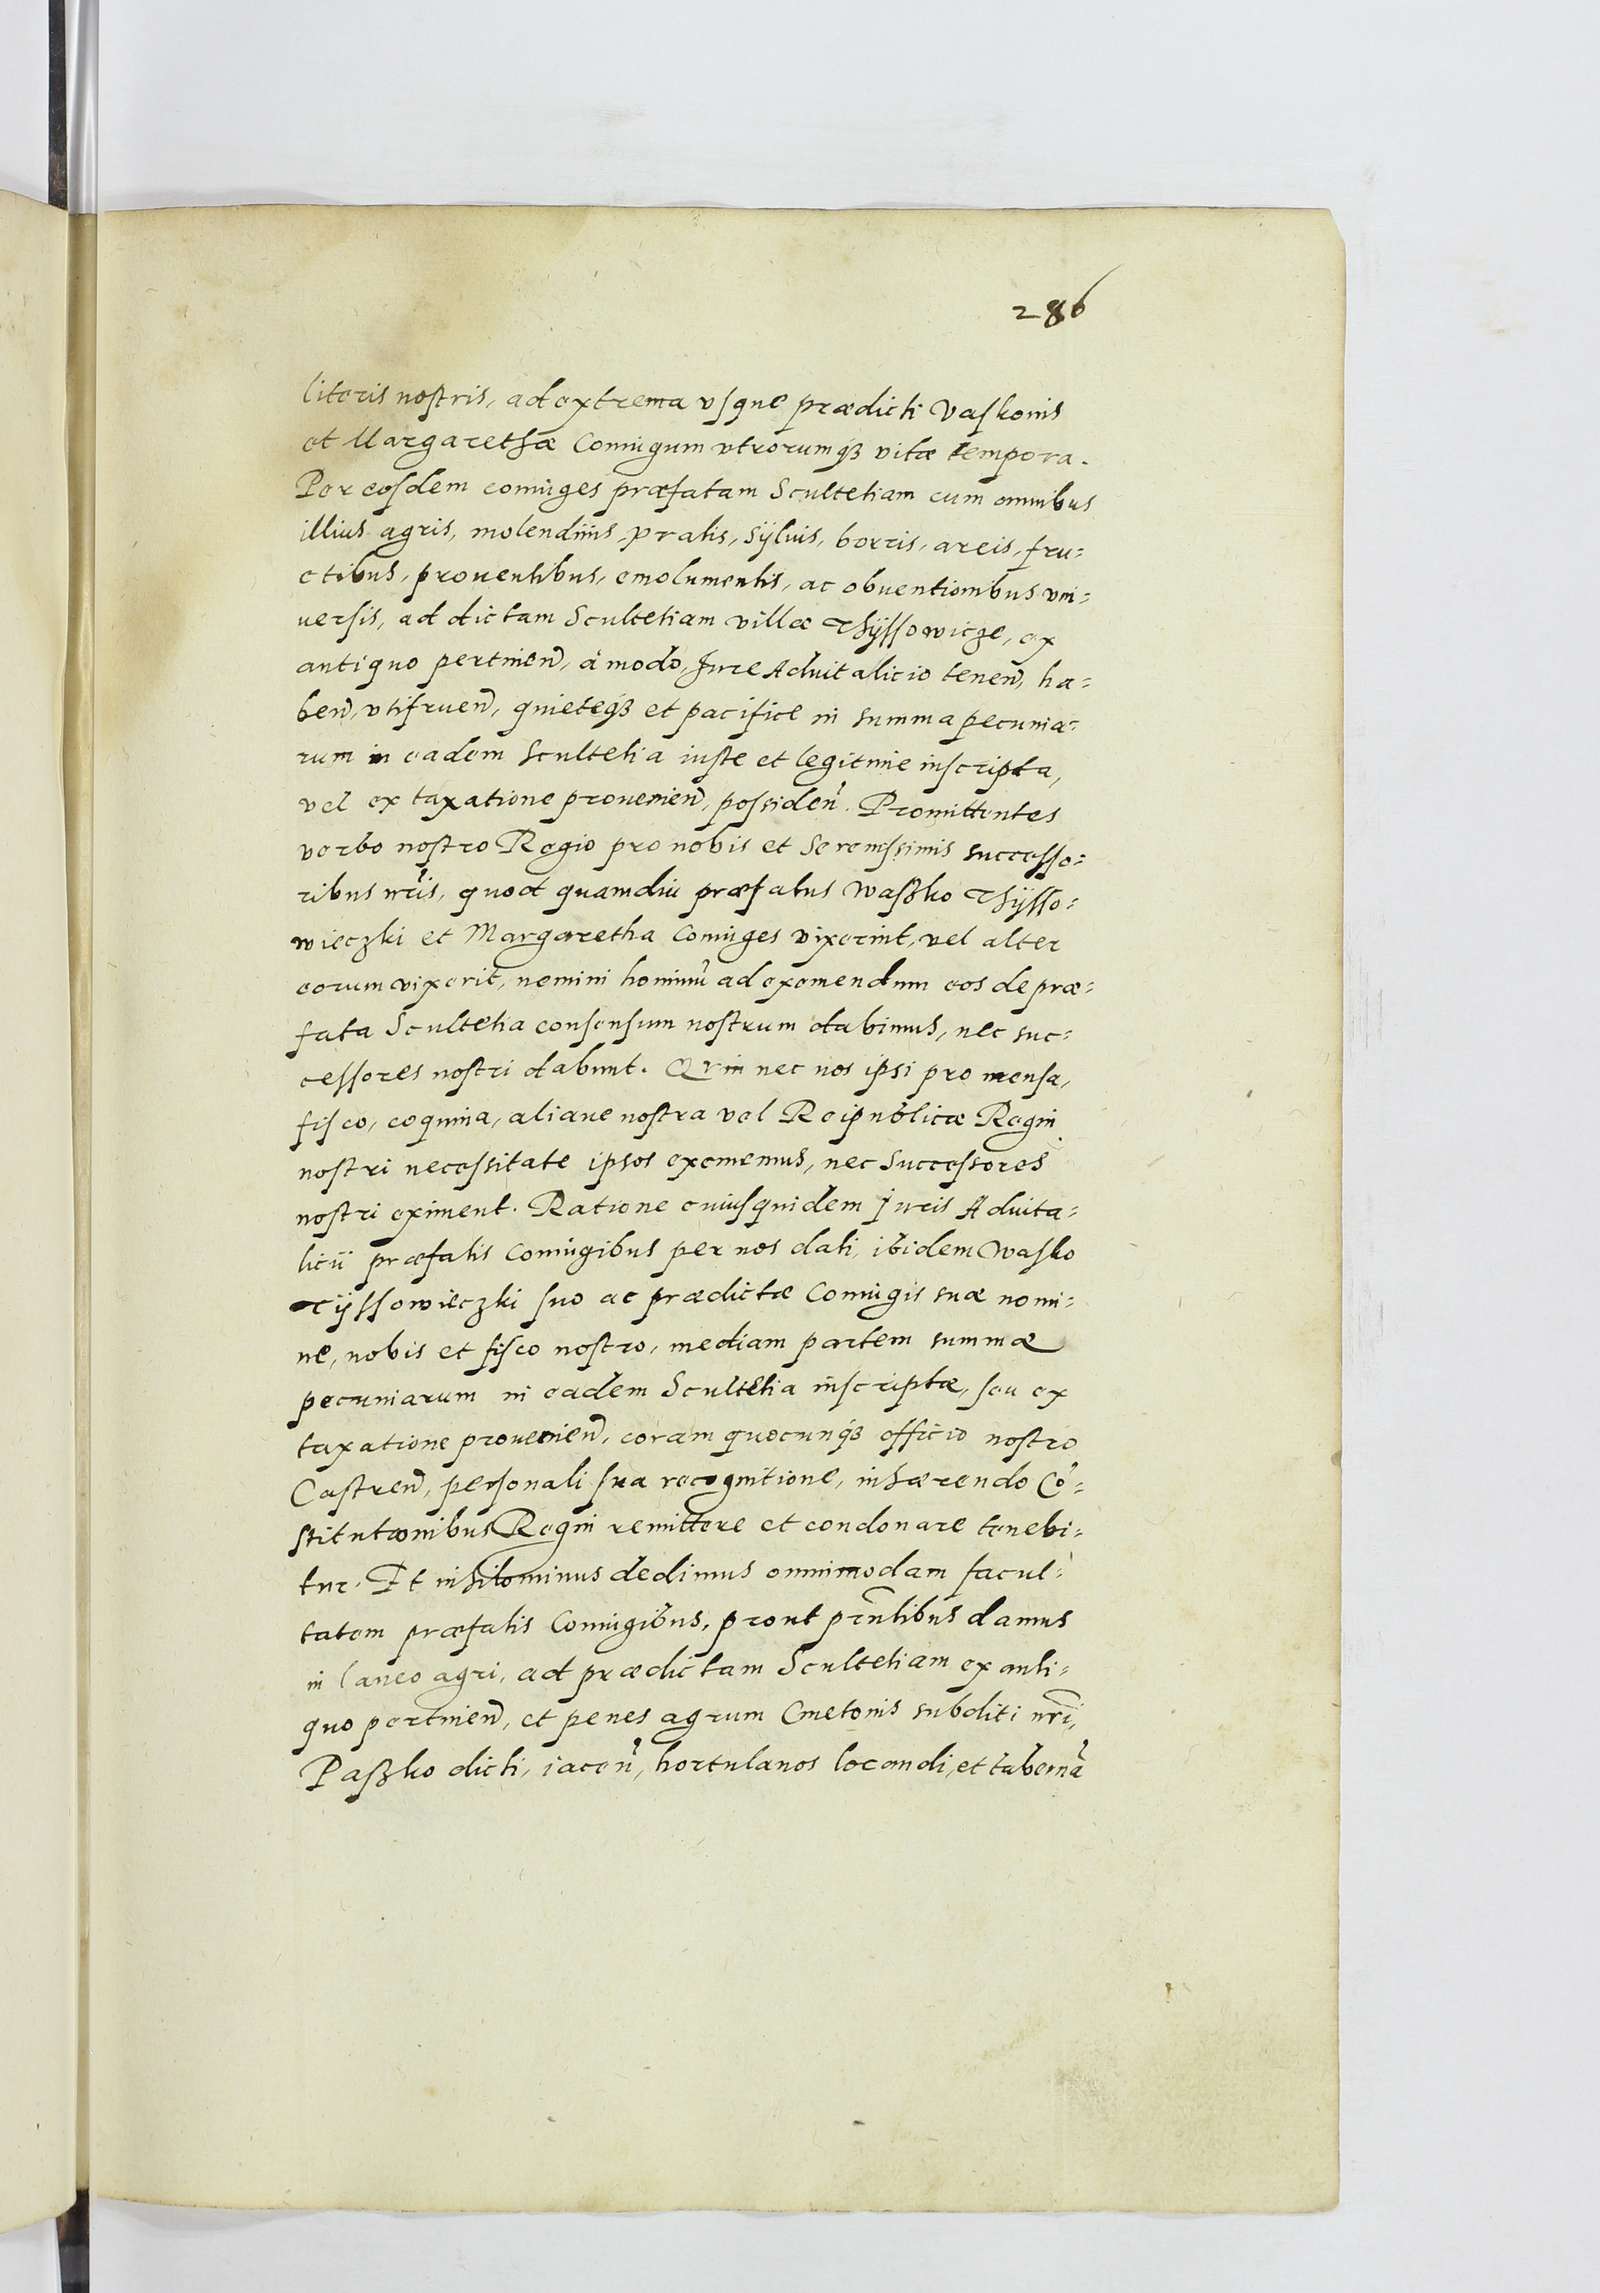 286
literis nostris, ad extrema vsque prædicti Vaskonis
et Margarethæ Coniugum vtrorumq₃ vitæ tempora.
Per eosdem coniuges præfatam Scultetiam cum omnibus
illius agris, molendinis, pratis, sÿluis, borris, areis, fru=
ctibus, prouentibus, emolumentis, ac obuentionibus vni=
uersis, ad dictam Scultetiam villæ Thÿssowicze, ex
antiquo pertinen̄, a modo, Jure Aduitalicio tenen̄, ha=
ben̄, vtifruen̄, quieteq₃ et pacifice in summa pecunia=
rum in eadem Scultetia iuste et legitime inscripta,
vel ex taxatione prouenien̄, possiden̄. Promittentes
verbo nostro Regio pro nobis et Serenissimis successo=
ribus nr̄is, quod quamdiu præfatus Waszko Thÿsso=
wieczki et Margaretha Coniuges vixerint, vel alter
eorum vixerit, nemini hominū ad eximendum eos de præ=
fata Scultetia consensum nostrum dabimus, nec suc=
cessores nostri dabunt. Quin nec nos ipsi pro mensa,
fisco, coquina, aliaue nostra vel Reipublicæ Regni
nostri necessitate ipsos eximemus, nec Successores
nostri eximent. Ratione cuiusquidem Juris Aduita=
licii præfatis Coniugibus per nos dati, ibidem Wasko
Tÿssowieczki suo ac prædictæ Coniugis suæ nomi=
ne, nobis et fisco nostro, mediam partem summæ
pecuniarum in eadem Scultetia inscriptæ, seu ex
taxatione prouenien̄, coram quocunq₃ officio nostro
Castren̄, personali sua recognitione, inhærendo Cō=
stitutionibus Regni remittere et condonare tenebi=
tur. Et nihilominus dedimus omnimodam facul=
tatem præfatis Coniugibus, prout pr̄ntibus damus
in laneo agri, ad prædictam Scultetiam ex anti=
quo pertinen̄, et penes agrum Cmetonis subditi nr̄i,
Paszko dicti, iacen̄, hortulanos locandi, et tabernā